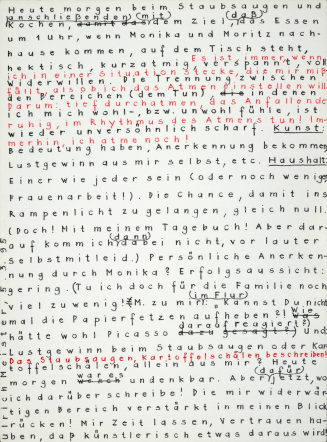 Heute morgen beim Staubsaugen und
anschließenden) (mit) (daß)
Kochen, damit dem Ziel, das Essen
um 1 uhr, wenn Monika und Moritz nach-
hause kommen, auf dem Tisch steht,
Es ist immer, wenn
hektisch, kurzatmig, verspannt, voll
ich in einer Situation stecke, die mir miß
widerwillen. Die Trennung zwischen
fällt, also ob ich das Atmen einstellen will.
den Bereichen (dem Tun), in denen
Darum: tief durchatmen, das Anfallende
ich mich wohl-, bzw. unwohl fühle, ist
ruhig, im Rhythmus des Atmens tun! Im-
wieder unversöhnlich scharf. Kunst:
merhin, ich atme noch!
Bedeutung haben, Anerkennung bekommen
Lustgewinn aus mir selbst, etc. Haushalt:
Einer wie jeder sein (oder noch weniger
Frauenarbeit!). Die Chance, damit ins
Rampenlicht zu gelangen, gleich null.
(Doch! Mit meinem Tagebuch! Aber dar-
(dann)
auf komm ich dabei nicht, vor lauter
selbstmitleid.) Persönliche Anerken-
nung durch Monika? Erfolgsaussicht:
gering. (Tu ich doch für die Familie noch
(im Flur)
viel zu wenig! M. zu mir: Kannst Du nicht
mal die Papierfetzen aufheben?! Wie
darauf reagiert?)
hätte wohl Picasso dazu gesagt) Und
Lustgewinn beim Staubsaugen oder Kar-
Das Staubsaugen, Kartoffelschälen beschreiben!
toffelschälen, allein aus mir? Heute
war es
morgen undenkbar. Aber jetzt, wo
(dafür)
ich darüber schreibe! Die mir widerwär
tigen Bereich verstärkt in meinen Blick
rücken! Mir Zeit lassen, Vertrauen ha-
ben, daß künstlerisch etwas daraus wird